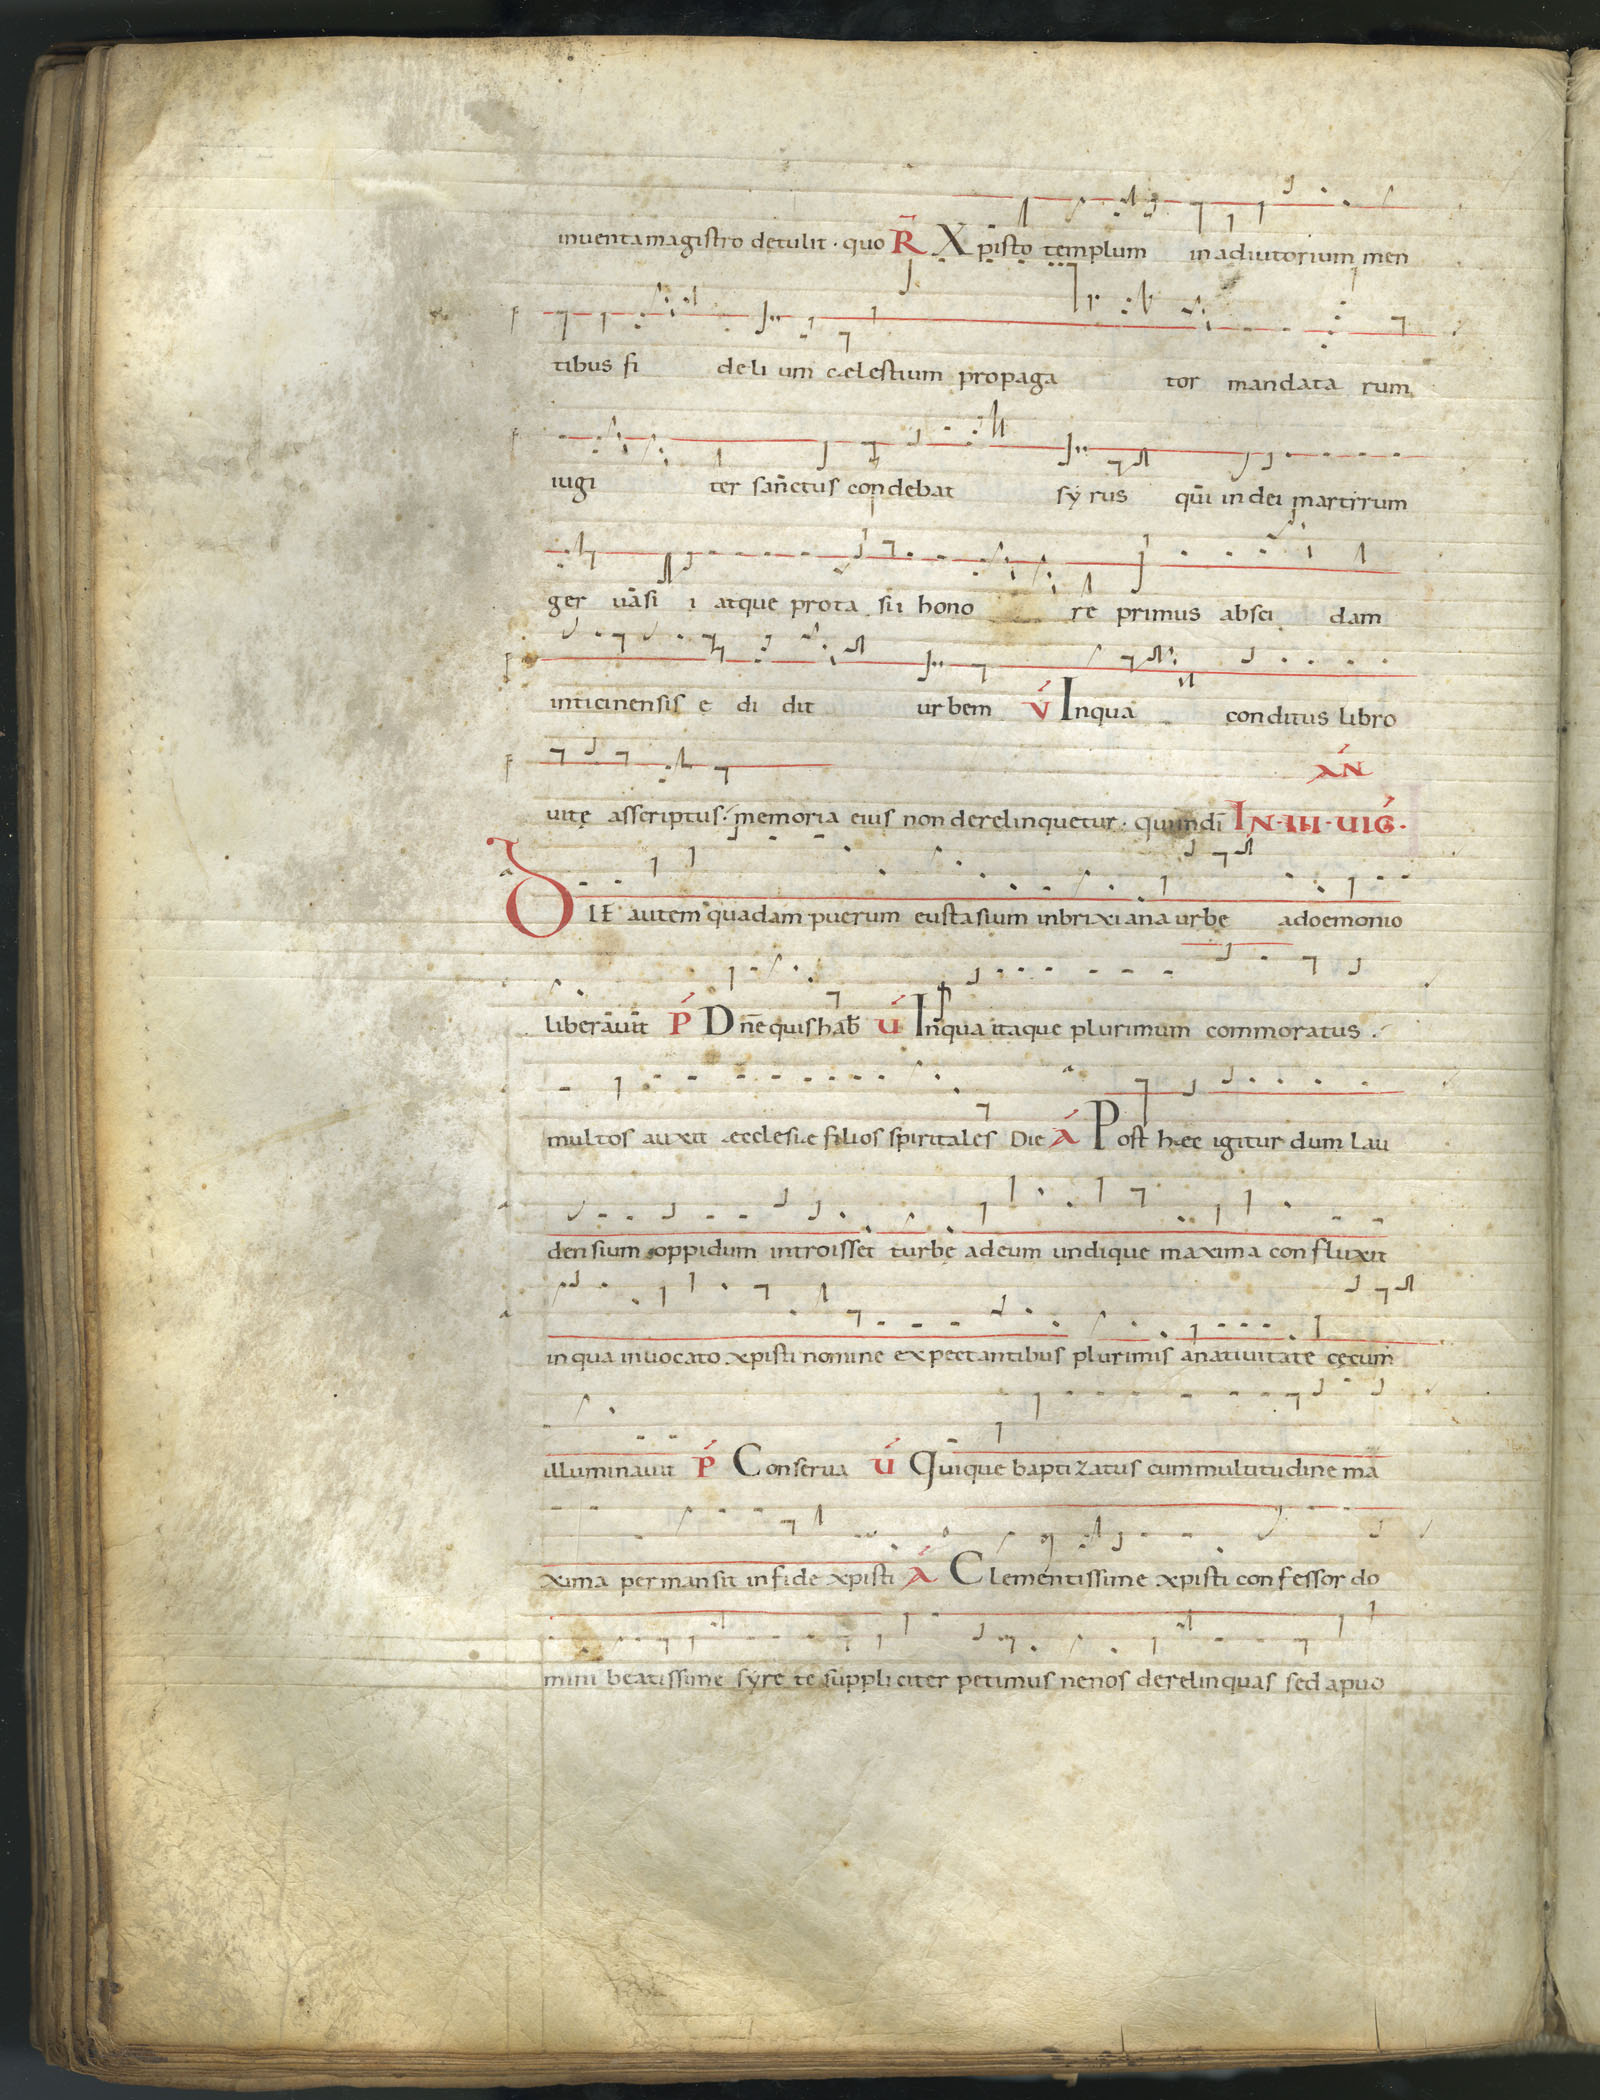 inventa magistro detulit · quo R̄ Xpisto templum in adiutorium men
tibus fi deli um cælestium propaga tor mandata rum
iugi ter san̄ctus condebat sy rus qui in dei martyrum
ger vasi i atque prota sii hono re primus absci dam
inticinensis e di dit urbem V́ Inqua conditus libro
ÁN
vitę asscriptus · memoria eius non derelinquetur · qui indī IN · III · UIǴ ·
DIE autem quadam puerum eustasium inbrixiana urbe adoemonio
liberavit Ṕ Dn̄e quis hab̄ Ú Inqua itaque plurimum commoratus .
multos auxit æcclesiæ filios spiritales Die Á Post hæc igitur dum Lau
densium oppidum introisset turbę adeum undique maxima confluxit
inqua invocato xpisti nomine expectantibus plurimis anativitate cęcum
illuminavit Ṕ Conserva Ú Quique baptizatus cum multitudine ma
xima permansit infide xpisti Á Clementissime xpisti confessor do
mini beatissime syre te suppliciter petimus nenos derelinquas sed apud